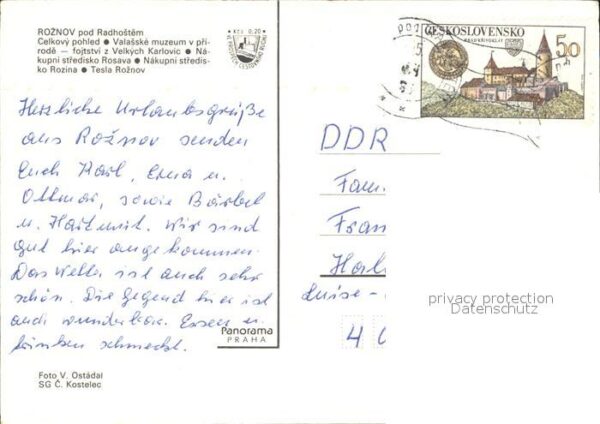 ROŽNOV pod Radhoštěm
Celkový pohled ● Valašské muzeum v pří-
rodě — fojtství z Velkých Karlovic ● Ná-
kupní středisko Rosava ● Nákupní středis-
ko Rozina ● Tesla Rožnov
Kčs 0,20
Herzliche Urlaubsgrüße
aus Rožnov senden
Euch Karl, Erna u.
Ottmar, sowie Bärbel
u. Hartmut. Wir sind
gut hier angekommen.
Das Wetter ist auch sehr
schön. Die Gegend hier ist
auch wunderbar. Essen u.
trinken schmeckt.
Panorama
PRAHA
Foto V. Ostádal
SG Č. Kostelec
ČESKOSLOVENSKO
5,0
DDR
Fam.
Fran
Luise-
4
privacy protection
Datenschutz